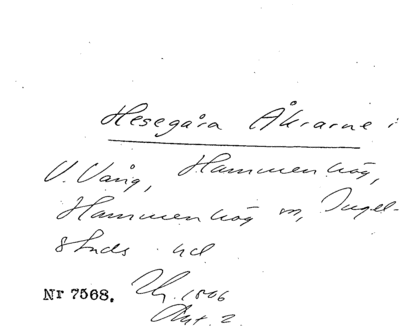 Hesegåra Åkrarne i
V. Vång, Hammenhög,
Hammenhög sn, Ingel-
stads hd
Nr 7568. Uh. 1806
Akt. 2.